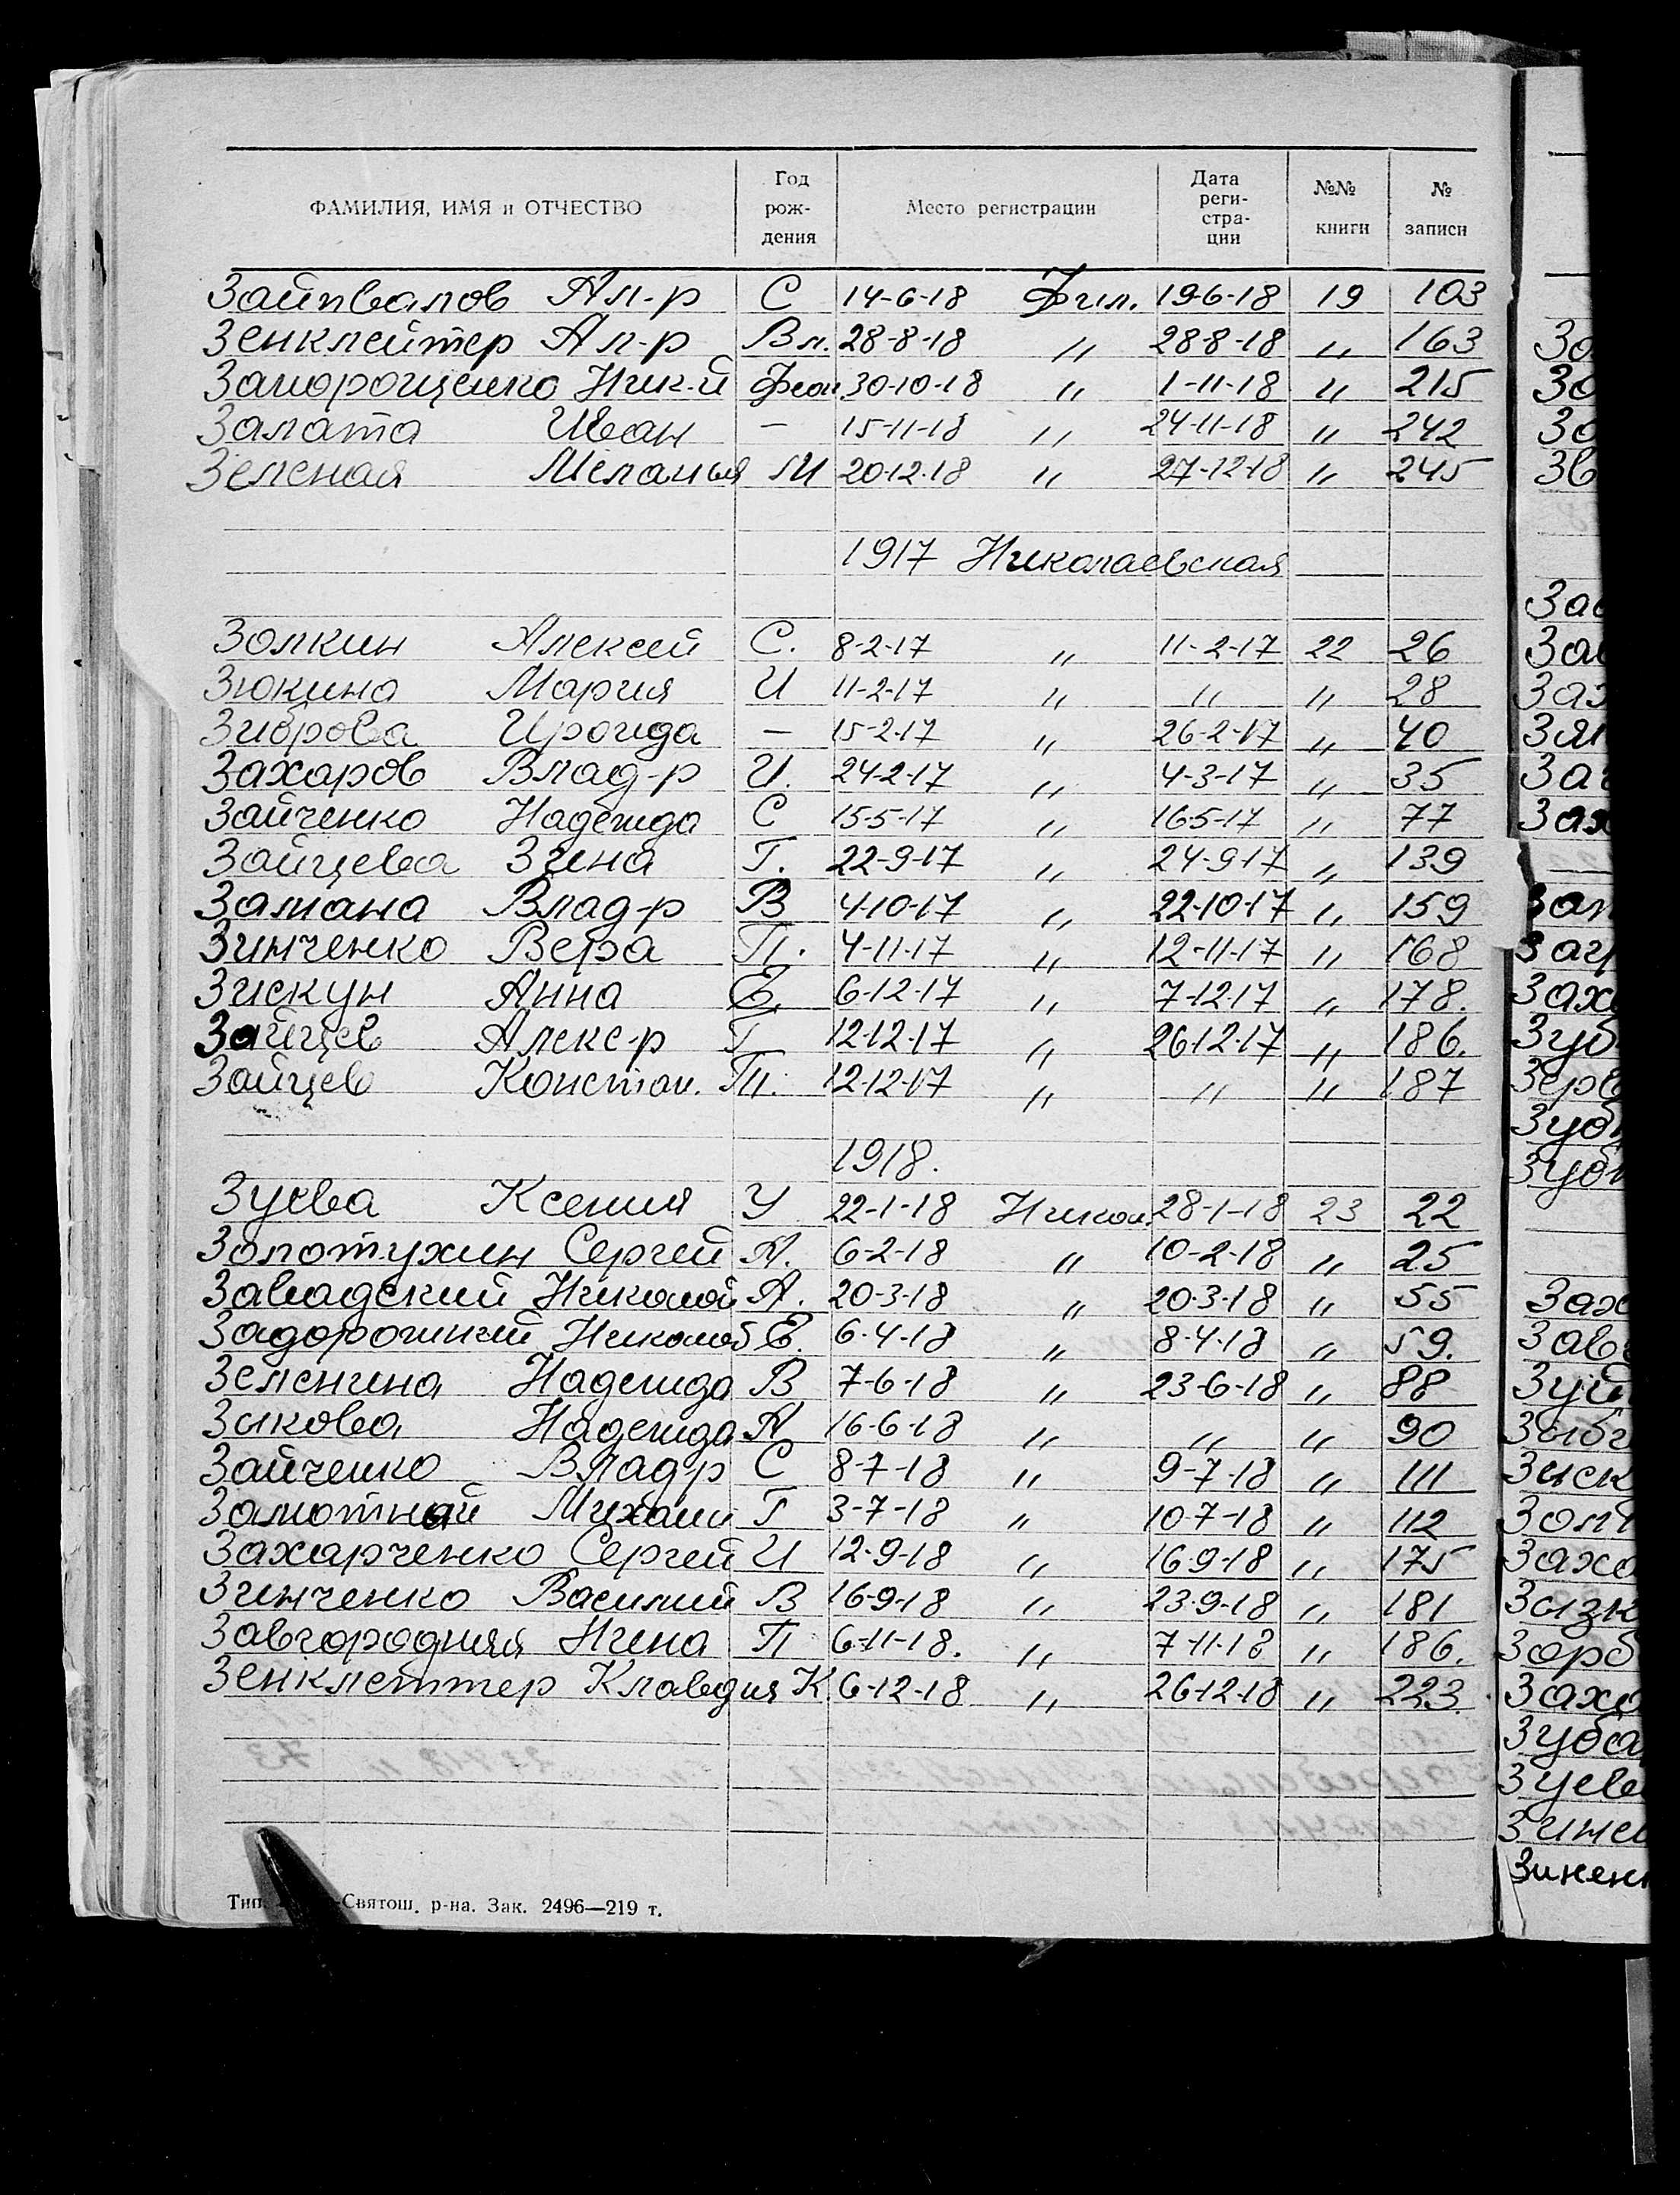 ФАМИЛИЯ, ИМЯ и ОТЧЕСТВО | Год рож-дения | Место регистрации | Дата реги-стра-ции | №№ книги | № записи
Зайпвалов Ал-р С 14-6-18 Фил. 19-6-18 19 103
Зенклейтер Ал-р Вл. 28-8-18 " 28-8-18 " 163
Запорощенко Ник-й 30-10-18 " 1-11-18 " 215
Залата Иван - 15-11-18 " 24-11-18 " 242
Зеленая Меланья М 20-12-18 " 27-12-18 " 245
1917 Николаевская
Золкин Алексей С. 8-2-17 " 11-2-17 22 26
Зюкина Мария И 11-2-17 " " " 28
Зиброва Ироида - 15-2-17 " 26-2-17 " 40
Захаров Влад-р И. 24-2-17 " 4-3-17 " 35
Зайченко Надежда С 15-5-17 " 16-5-17 " 77
Зайцева Зина Г. 22-9-17 " 24-9-17 " 139
Замана Влад-р В 4-10-17 " 22-10-17 " 159
Зинченко Вера П. 4-11-17 " 12-11-17 " 168
Зискун Анна Е. 6-12-17 " 7-12-17 " 178.
Зайцев Алекс-р Г 12-12-17 " 26-12-17 " 186.
Зайцев Констан. 12-12-17 " " " 187
1918.
Зуева Ксения У 22-1-18 Никол. 28-1-18 23 22
Золотухин Сергей А. 6-2-18 " 10-2-18 " 25
Завадский Николай А. 20-3-18 " 20-3-18 " 55
Задорожний Николай Е. 6-4-18 " 8-4-18 " 59.
Зеленина Надежда В 7-6-18 " 23-6-18 " 88
Зыкова Надежда А 16-6-18 " " " 90
Зайченко Влад-р С 8-7-18 " 9-7-18 " 111
Замотный Михаил Г 3-7-18 " 10-7-18 " 112
Захарченко Сергей И 12-9-18 " 16-9-18 " 175
Зинченко Василий В 16-9-18 " 23-9-18 " 181
Завгородняя Нина П 6-11-18. " 7-11-18 " 186.
Зенклейтер Клавдия К. 6-12-18 " 26-12-18 " 223.
Тип. -Святош. р-на. Зак. 2496—219 т.